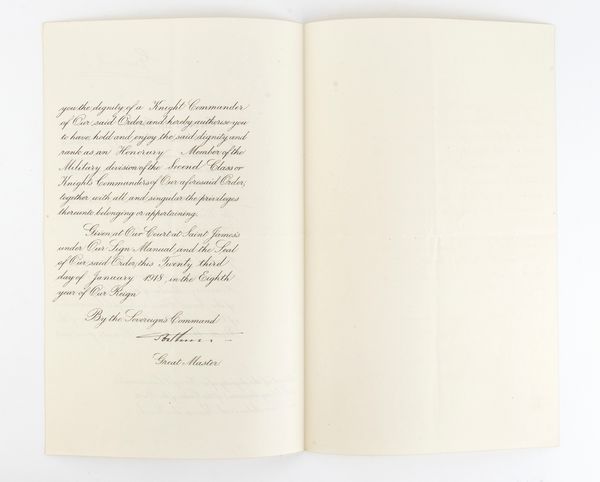 you the dignity of a Knight Commander
of Our said Order, and hereby authorise you
to have, hold and enjoy the said dignity and
rank as an Honorary Member of the
Military division of the Second Class or
Knights Commanders of Our aforesaid Order,
together with all and singular the privileges
thereunto belonging or appertaining.
Given at Our Court at Saint James's
under Our Sign Manual and the Seal
of Our said Order, this Twenty third
day of January 1918, in the Eighth
year of Our Reign
By the Sovereign's Command
Arthur
Great Master